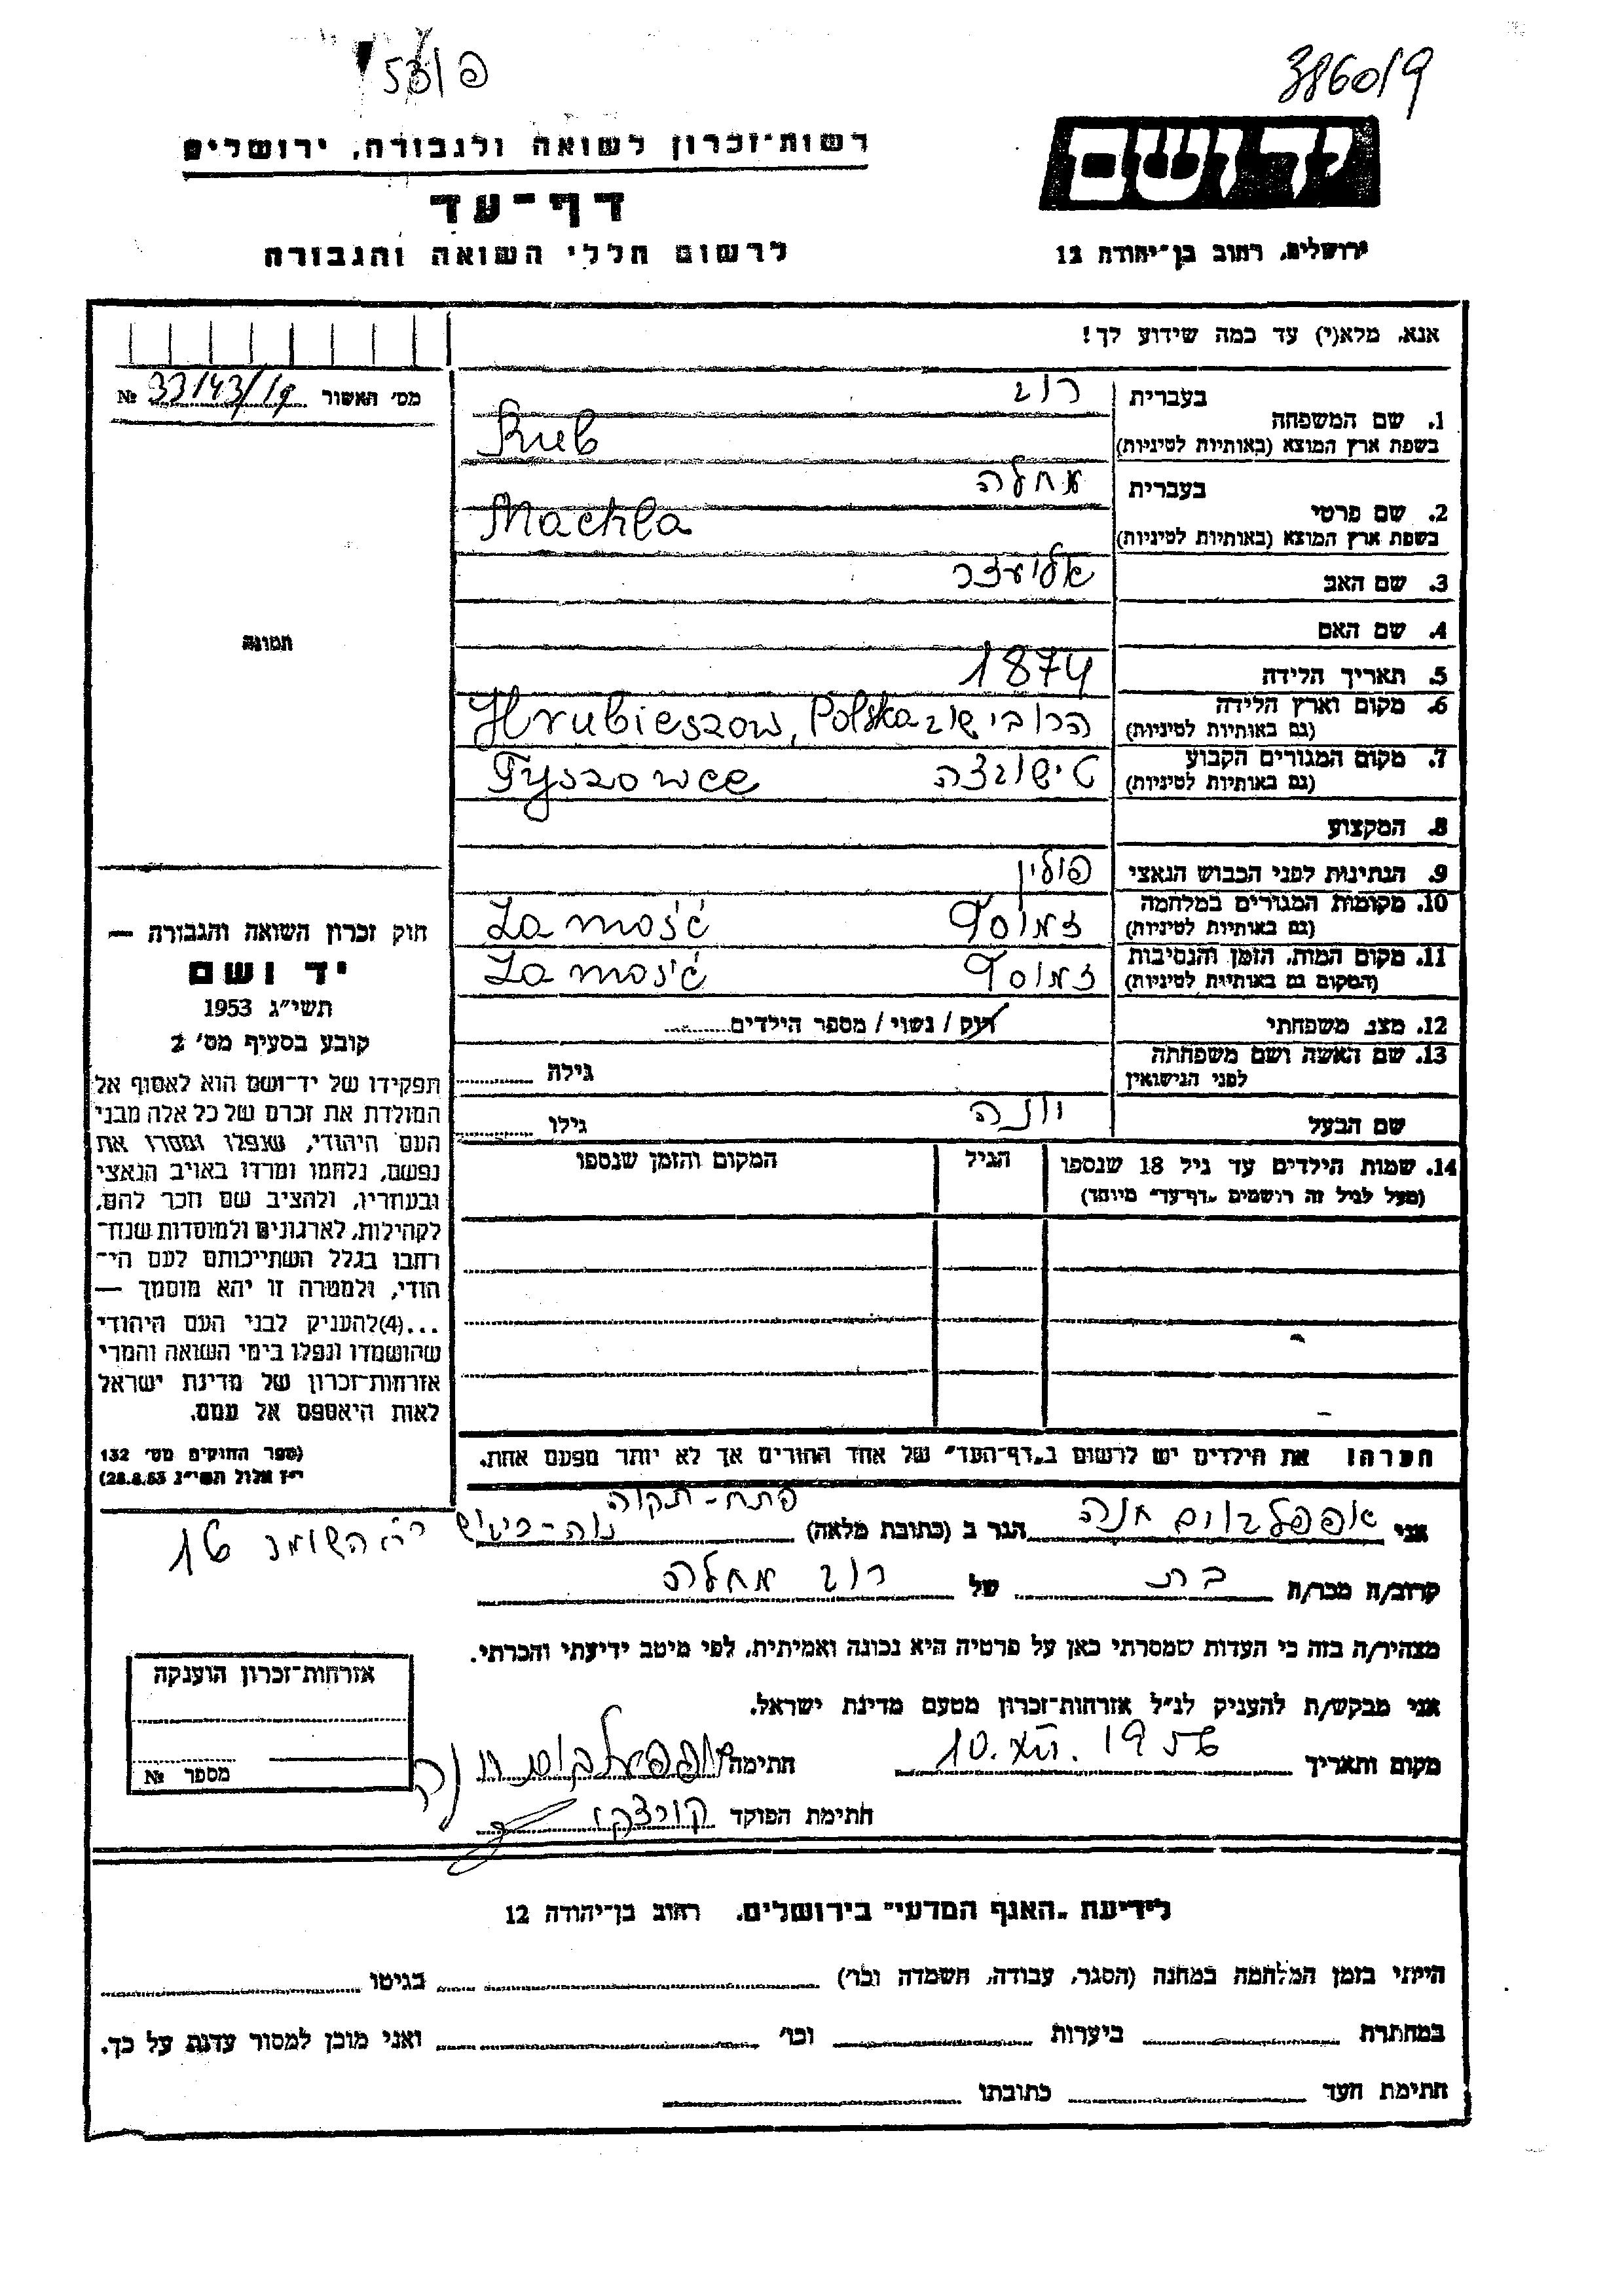 פ/53
38609/9
רשות־זכרון לשואה ולגבורה, ירושלים
דף־עד
לרשום חללי השואה והגבורה
יד ושם
ירושלים, רחוב בן־יהודה 12
אנא, מלא(י) עד כמה שידוע לך!
מס׳ האשור 33143/19 №
תמונה
1. שם המשפחה
בעברית רוב
בשפת ארץ המוצא (באותיות לטיניות) Rub
2. שם פרטי
בעברית מחלה
בשפת ארץ המוצא (באותיות לטיניות) Machla
3. שם האב אליעזר
4. שם האם
5. תאריך הלידה 1874
6. מקום וארץ הלידה הרובישוב Hrubieszow, Polska
(גם באותיות לטיניות)
7. מקום המגורים הקבוע טישובצה Tyszowce
(גם באותיות לטיניות)
8. המקצוע
9. הנתינות לפני הכבוש הנאצי פולין
10. מקומות המגורים במלחמה זמוסץ Zamość
(גם באותיות לטיניות)
11. מקום המות, הזמן והנסיבות זמוסץ Zamość
(המקום גם באותיות לטיניות)
12. מצב משפחתי רווק / נשוי / מספר הילדים
13. שם האשה ושם משפחתה
לפני הנישואין
גילה
שם הבעל יונה גילו
14. שמות הילדים עד גיל 18 שנספו הגיל המקום והזמן שנספו
(מעל לגיל זה רושמים „דף־עד״ מיוחד)
הערה! את הילדים יש לרשום ב„דף־העד״ של אחד ההורים אך לא יותר מפעם אחת.
חוק זכרון השואה והגבורה —
יד ושם
תשי״ג 1953
קובע בסעיף מס׳ 2
תפקידו של יד־ושם הוא לאסוף אל
המולדת את זכרם של כל אלה מבני
העם היהודי, שנפלו ומסרו את
נפשם, נלחמו ומרדו באויב הנאצי
ובעוזריו, ולהציב שם וזכר להם,
לקהילות, לארגונים ולמוסדות שנח־
רבו בגלל השתייכותם לעם הי־
הודי, ולמטרה זו יהא מוסמך —
...(4)להעניק לבני העם היהודי
שהושמדו ונפלו בימי השואה והמרי
אזרחות־זכרון של מדינת ישראל
לאות היאספם אל עמם.
(ספר החוקים מס׳ 132
י״ז אלול תשי״ג 28.8.53)
פתח-תקוה
אני אפפלבוים חנה הגר ב (כתובת מלאה) השומר 16
קרוב/ה מכר/ה בת של רוב מחלה
מצהיר/ה בזה כי העדות שמסרתי כאן על פרטיה היא נכונה ואמיתית, לפי מיטב ידיעתי והכרתי.
אני מבקש/ת להעניק לנ״ל אזרחות־זכרון מטעם מדינת ישראל.
מקום ותאריך 10.XII.1956 חתימה אפפעלבוים חנה
חתימת הפוקד
אזרחות־זכרון הוענקה
מספר №
לידיעת „האגף המדעי״ בירושלים, רחוב בן־יהודה 12
הייתי בזמן המלחמה במחנה (הסגר, עבודה, השמדה וכו׳) בגיטו
במחתרת ביערות וכו׳ ואני מוכן למסור עדות על כך.
חתימת העד כתובתו